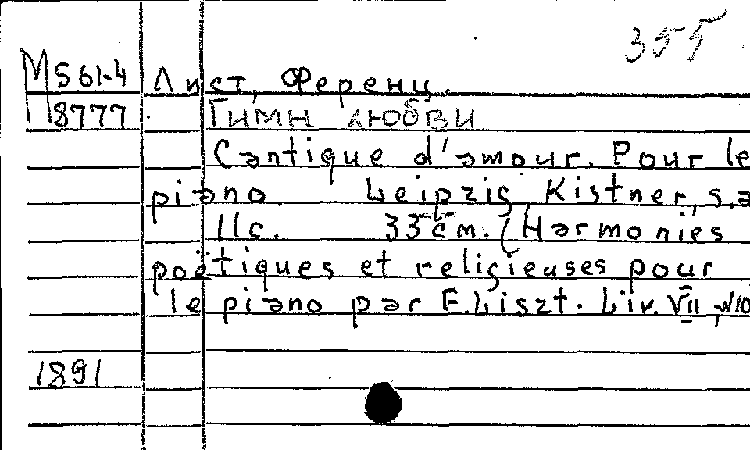 355
М 561-4 Лист, Ференц.
П 8777 Гимн любви
Cantique d'amour. Pour le
piano. Leipzig, Kistner, s.a
11c. 33 см. (Harmonies
poëtiques et religieuses pour
le piano par F. Liszt. Liv. VII, №10
1891